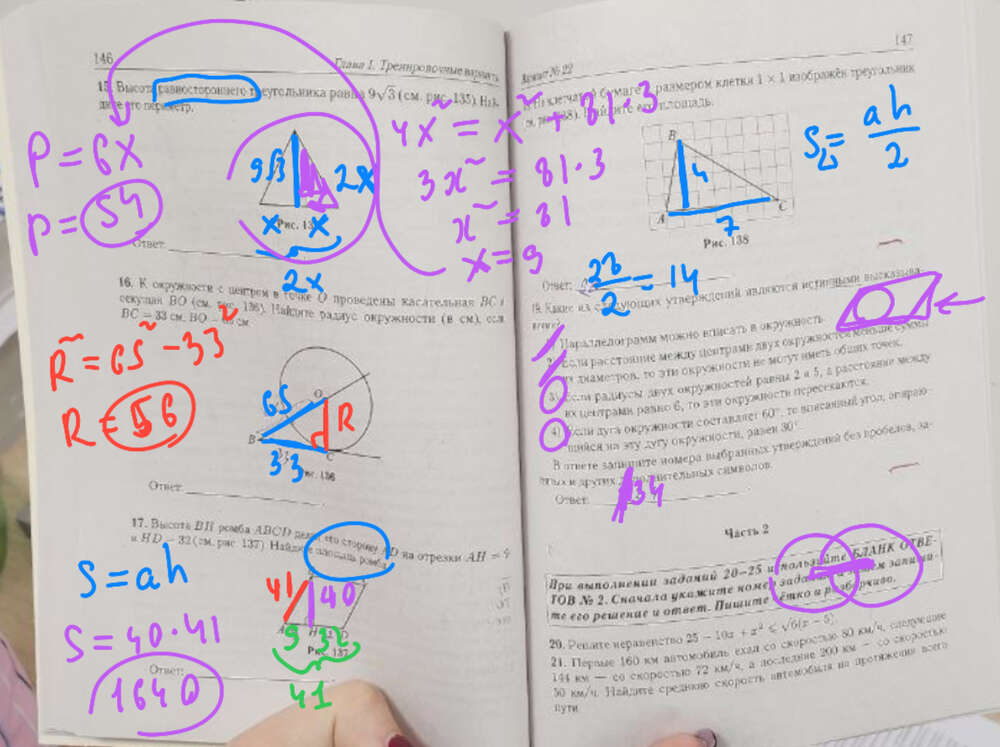 146
Глава I. Тренировочные варианты
15. Высота равностороннего треугольника равна 9√3 (см. рис. 135). Най-
дите его периметр.
P = 6x
P = 54
9√3
2x
x x
2x
4x² = x² + 81·3
3x² = 81·3
x² = 81
x = 9
Ответ:
16. К окружности с центром в точке O проведены касательная BC и
секущая BO (см. рис. 136). Найдите радиус окружности (в см), если
BC = 33 см, BO = см
R² = 65² - 33²
R = 56
65
O
R
B
33
C
Рис. 136
Ответ:
17. Высота BH ромба ABCD делит его сторону AD на отрезки AH = 9
и HD = 32 (см. рис. 137). Найдите площадь ромба.
S = ah
S = 40·41
1640
41
40
A H D
9 32
Рис. 137
41
Ответ:
147
Вариант № 22
На клетчатой бумаге с размером клетки 1 × 1 изображён треугольник
(см. рис. 138). Найдите его площадь.
S = ah/2
B
4
A
C
7
Рис. 138
Ответ: 28/2 = 14
19. Какие из следующих утверждений являются истинными высказыва-
Параллелограмм можно вписать в окружность
2) Если расстояние между центрами двух окружностей меньше суммы
их диаметров, то эти окружности не могут иметь общих точек.
3) Если радиусы двух окружностей равны 2 и 5, а расстояние между
их центрами равно 6, то эти окружности пересекаются.
4) Если дуга окружности составляет 60°, то вписанный угол, опираю-
щийся на эту дугу окружности, равен 30°
В ответе запишите номера выбранных утверждений без пробелов, за-
пятых и других дополнительных символов.
Ответ: 34
Часть 2
При выполнении заданий 20–25 используйте БЛАНК ОТВЕ-
ТОВ № 2. Сначала укажите номер задания, а затем запиши-
те его решение и ответ. Пишите чётко и разборчиво.
20. Решите неравенство 25 − 10x + x² ⩽ √6(x − 5).
21. Первые 160 км автомобиль ехал со скоростью 80 км/ч, следующие
144 км — со скоростью 72 км/ч, а последние 200 км — со скоростью
50 км/ч. Найдите среднюю скорость автомобиля на протяжении всего
пути